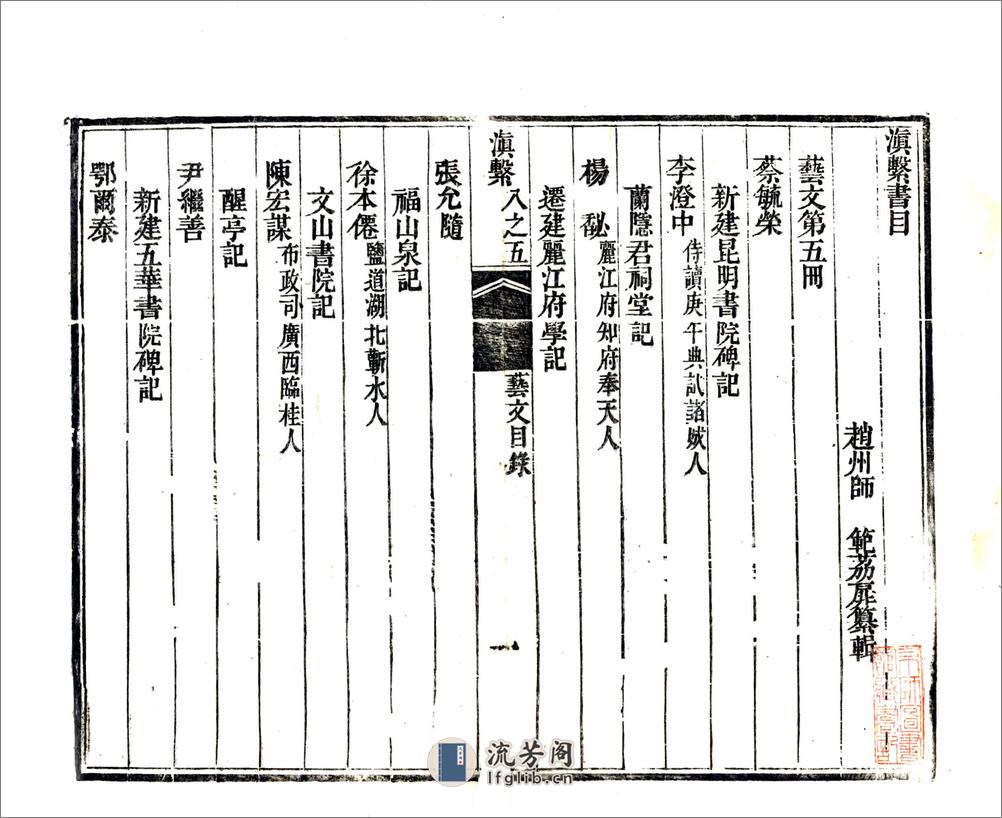 滇繫書目
趙州師　範荔扉纂輯
藝文第五冊
蔡毓榮
新建昆明書院碑記
李澄中　侍讀庚午典試諸城人
蘭隱君祠堂記
楊　馝　麗江府知府奉天人
遷建麗江府學記
滇繫　八之五　藝文目錄　一
張允隨
福山泉記
徐本僊　鹽道湖北蘄水人
文山書院記
陳宏謀　布政司廣西臨桂人
醒亭記
尹繼善
新建五華書院碑記
鄂爾泰
流芳阁
lfglib.cn